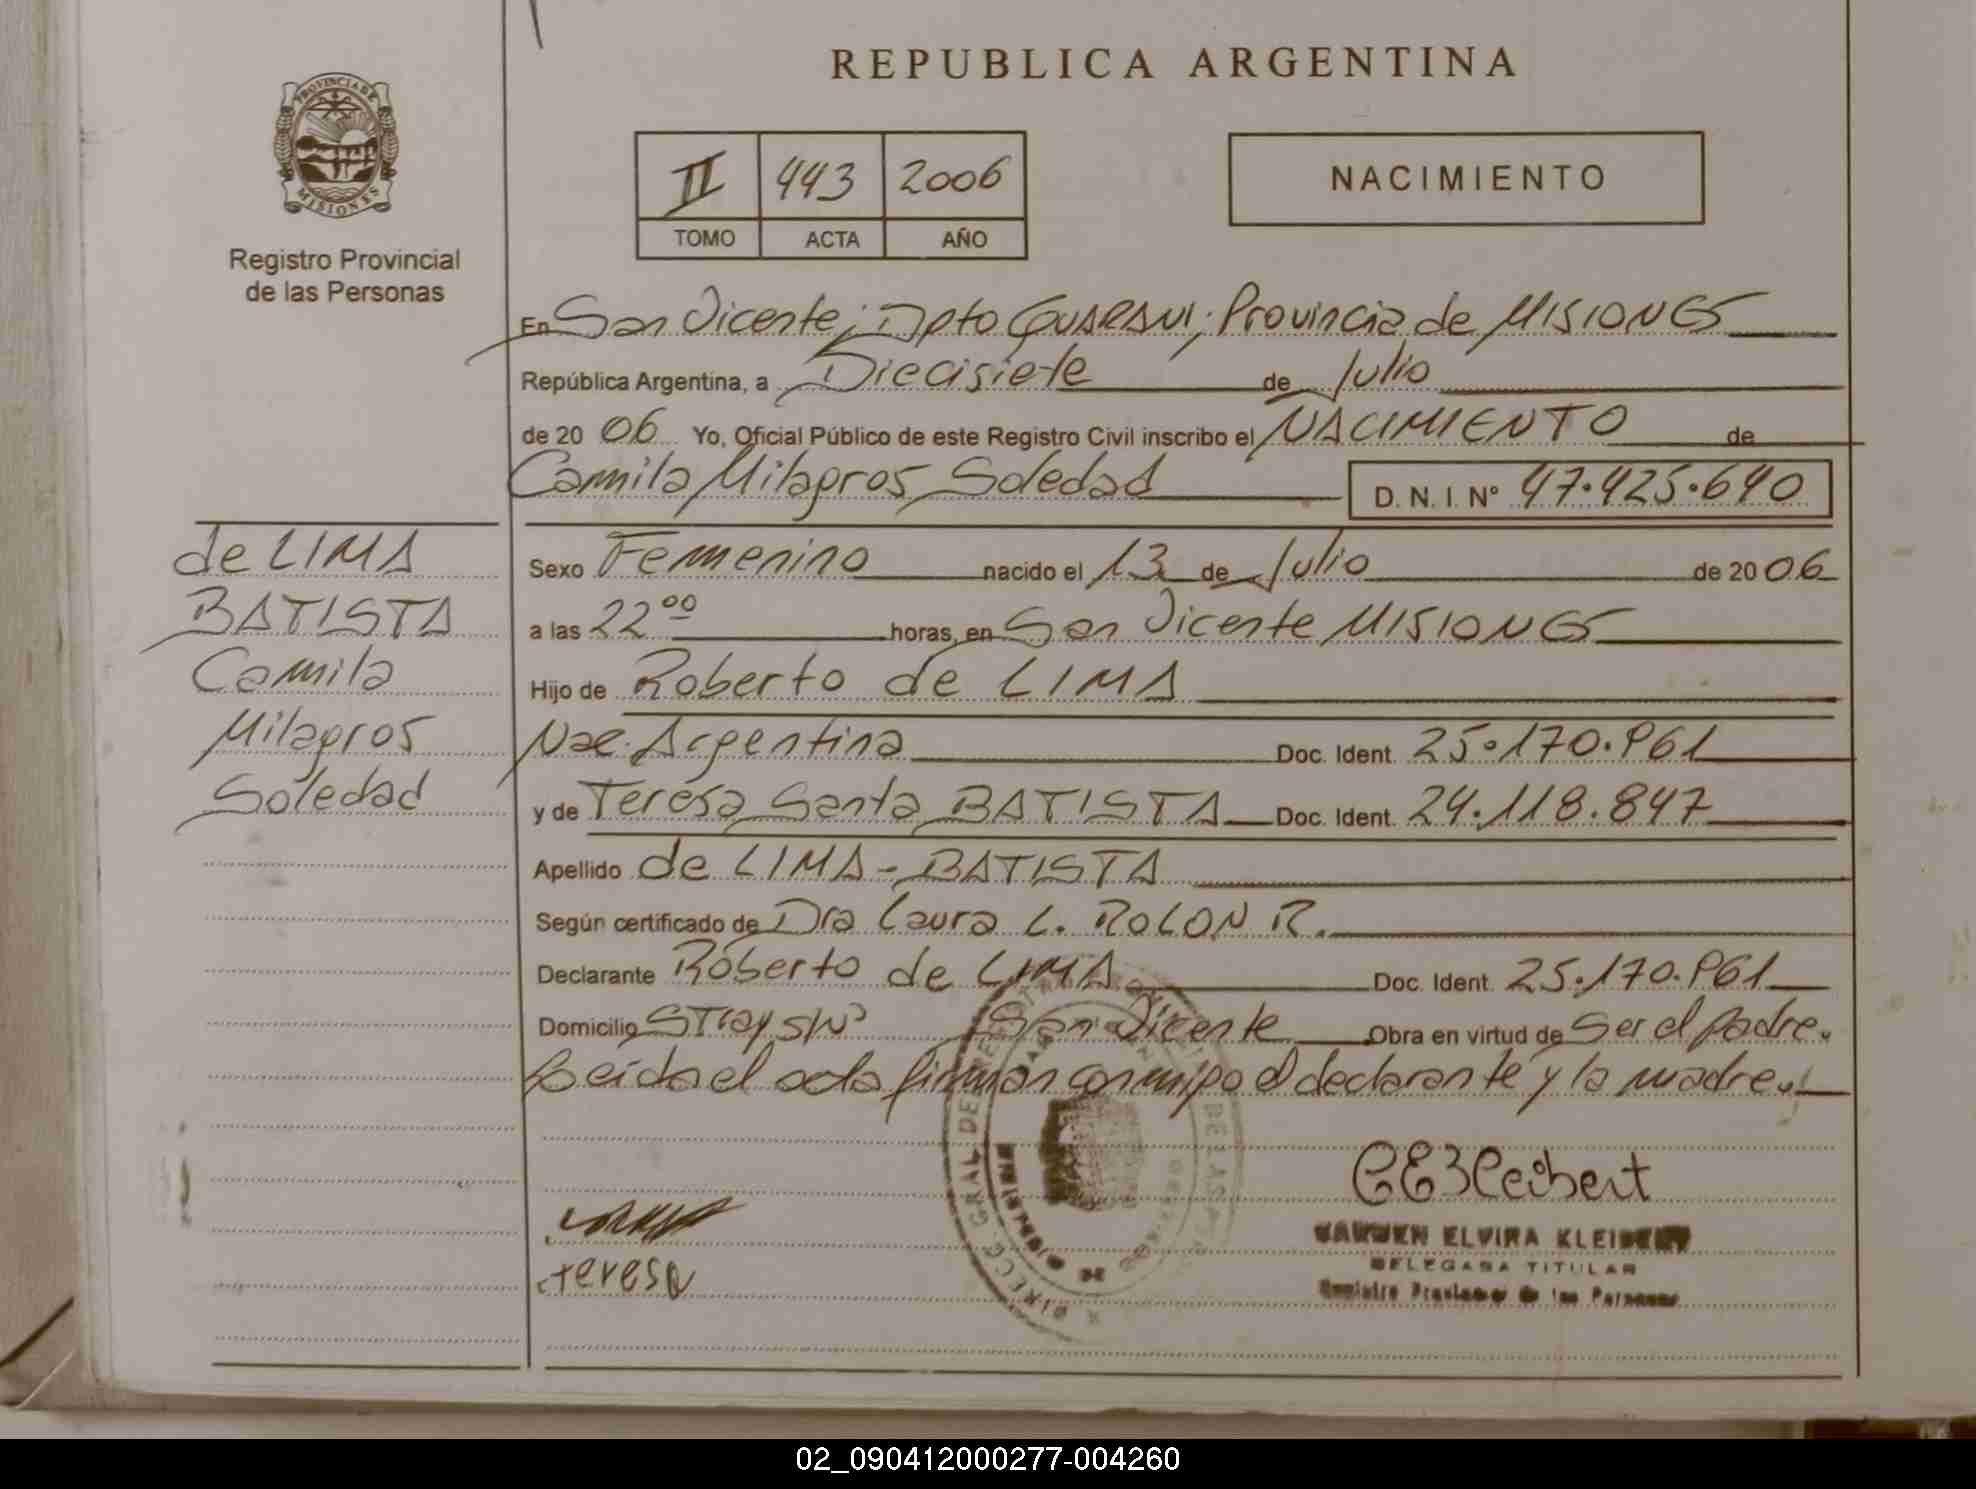 REPUBLICA ARGENTINA
PROVINCIA DE
MISIONES
Registro Provincial
de las Personas
II 443 2006
TOMO ACTA AÑO
NACIMIENTO
En San Vicente; Dpto GUARANI; Provincia de MISIONES
República Argentina, a Diecisiete de Julio
de 2006 Yo, Oficial Público de este Registro Civil inscribo el NACIMIENTO de
Camila Milagros Soledad D. N. I. N° 47.425.640
de LIMA
BATISTA
Camila
Milagros
Soledad
Sexo Femenino nacido el 13 de Julio de 2006
a las 22ºº horas, en San Vicente MISIONES
Hijo de Roberto de LIMA
Nac. Argentina Doc. Ident. 25.170.961
y de Teresa Santa BATISTA Doc. Ident. 24.118.847
Apellido de LIMA-BATISTA
Según certificado de Dra Laura L. ROLON R.
Declarante Roberto de LIMA Doc. Ident. 25.170.961
Domicilio S/Nº San Vicente Obra en virtud de Ser el padre.
Leída el acta firman conmigo el declarante y la madre.
teresa
CEKleibert
CARMEN ELVIRA KLEIBERT
DELEGADA TITULAR
Registro Provincial de las Personas
02_090412000277-004260